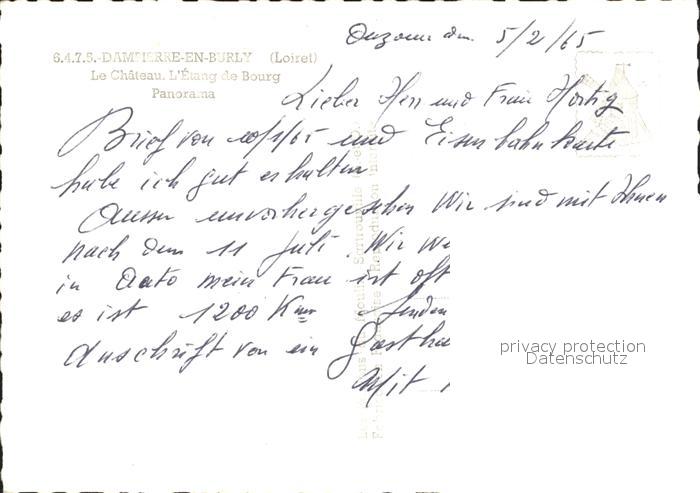 Ouzouer den 5/2/65
6.4.7.5.-DAMPIERRE-EN-BURLY (Loiret)
Le Château. L'Étang de Bourg
Panorama
Lieber Herr und Frau Hortig
Brief von 10/1/65 und Eisenbahnkarte
habe ich gut erhalten
Ausser unvorhergesehen Wir sind mit Ihnen
nach dem 11 Juli. Wir We
in Auto mein Frau ist oft
es ist 1200 Km finden
Anschrift von ein Gastha
Mit
privacy protection
Datenschutz